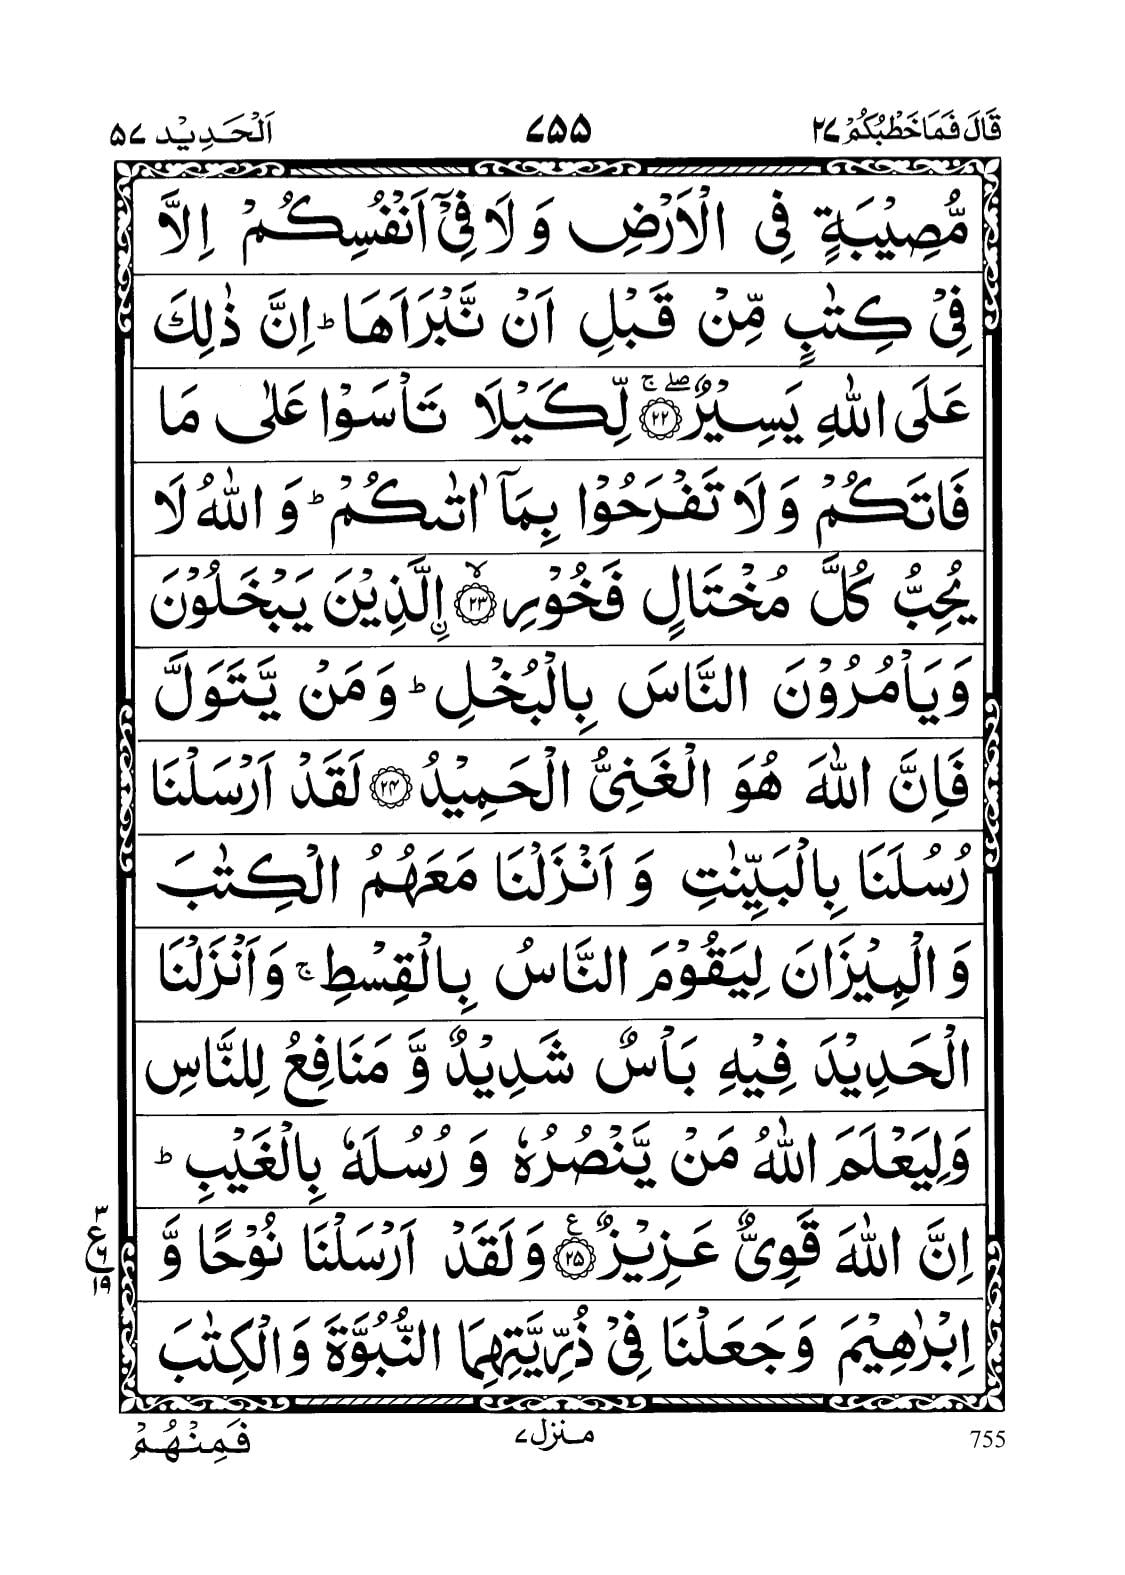 قَالَ فَمَا خَطْبُكُمْ ٢٧
٧٥٥
اَلْحَدِيْد ٥٧
مُّصِيْبَةٍ فِى الْاَرْضِ وَ لَا فِىْٓ اَنْفُسِكُمْ اِلَّا
فِىْ كِتٰبٍ مِّنْ قَبْلِ اَنْ نَّبْرَاَهَا ؕ اِنَّ ذٰلِكَ
عَلَى اللّٰهِ يَسِيْرٌ ۖۚ ﴿٢٢﴾ لِّكَيْلَا تَاْسَوْا عَلٰى مَا
فَاتَكُمْ وَ لَا تَفْرَحُوْا بِمَآ اٰتٰىكُمْ ؕ وَ اللّٰهُ لَا
يُحِبُّ كُلَّ مُخْتَالٍ فَخُوْرِ ۙ ﴿٢٣﴾ اِ۟لَّذِيْنَ يَبْخَلُوْنَ
وَ يَاْمُرُوْنَ النَّاسَ بِالْبُخْلِ ؕ وَ مَنْ يَّتَوَلَّ
فَاِنَّ اللّٰهَ هُوَ الْغَنِىُّ الْحَمِيْدُ ﴿٢٤﴾ لَقَدْ اَرْسَلْنَا
رُسُلَنَا بِالْبَيِّنٰتِ وَ اَنْزَلْنَا مَعَهُمُ الْكِتٰبَ
وَ الْمِيْزَانَ لِيَقُوْمَ النَّاسُ بِالْقِسْطِ ۚ وَ اَنْزَلْنَا
الْحَدِيْدَ فِيْهِ بَاْسٌ شَدِيْدٌ وَّ مَنَافِعُ لِلنَّاسِ
وَ لِيَعْلَمَ اللّٰهُ مَنْ يَّنْصُرُهٗ وَ رُسُلَهٗ بِالْغَيْبِ ؕ
اِنَّ اللّٰهَ قَوِىٌّ عَزِيْزٌ ﴿٢٥﴾ ع وَ لَقَدْ اَرْسَلْنَا نُوْحًا وَّ
٣
ع ٦
١٩
اِبْرٰهِيْمَ وَ جَعَلْنَا فِىْ ذُرِّيَّتِهِمَا النُّبُوَّةَ وَ الْكِتٰبَ
755
منزل ٧
فَمِنْهُمْ